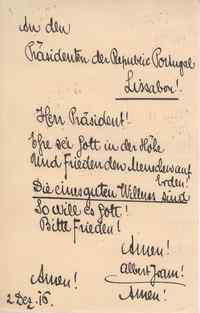 An den
Präsidenten der Republic Portugal
Lissabon!
Herr Präsident!
Ehre sei Gott in der Höhe
Und Frieden den Menschen auf
Erden!
Die eines guten Willens sind
So will es Gott!
Bitte Frieden!
Amen!
Amen! Albert
2 Dez. 16. Amen!